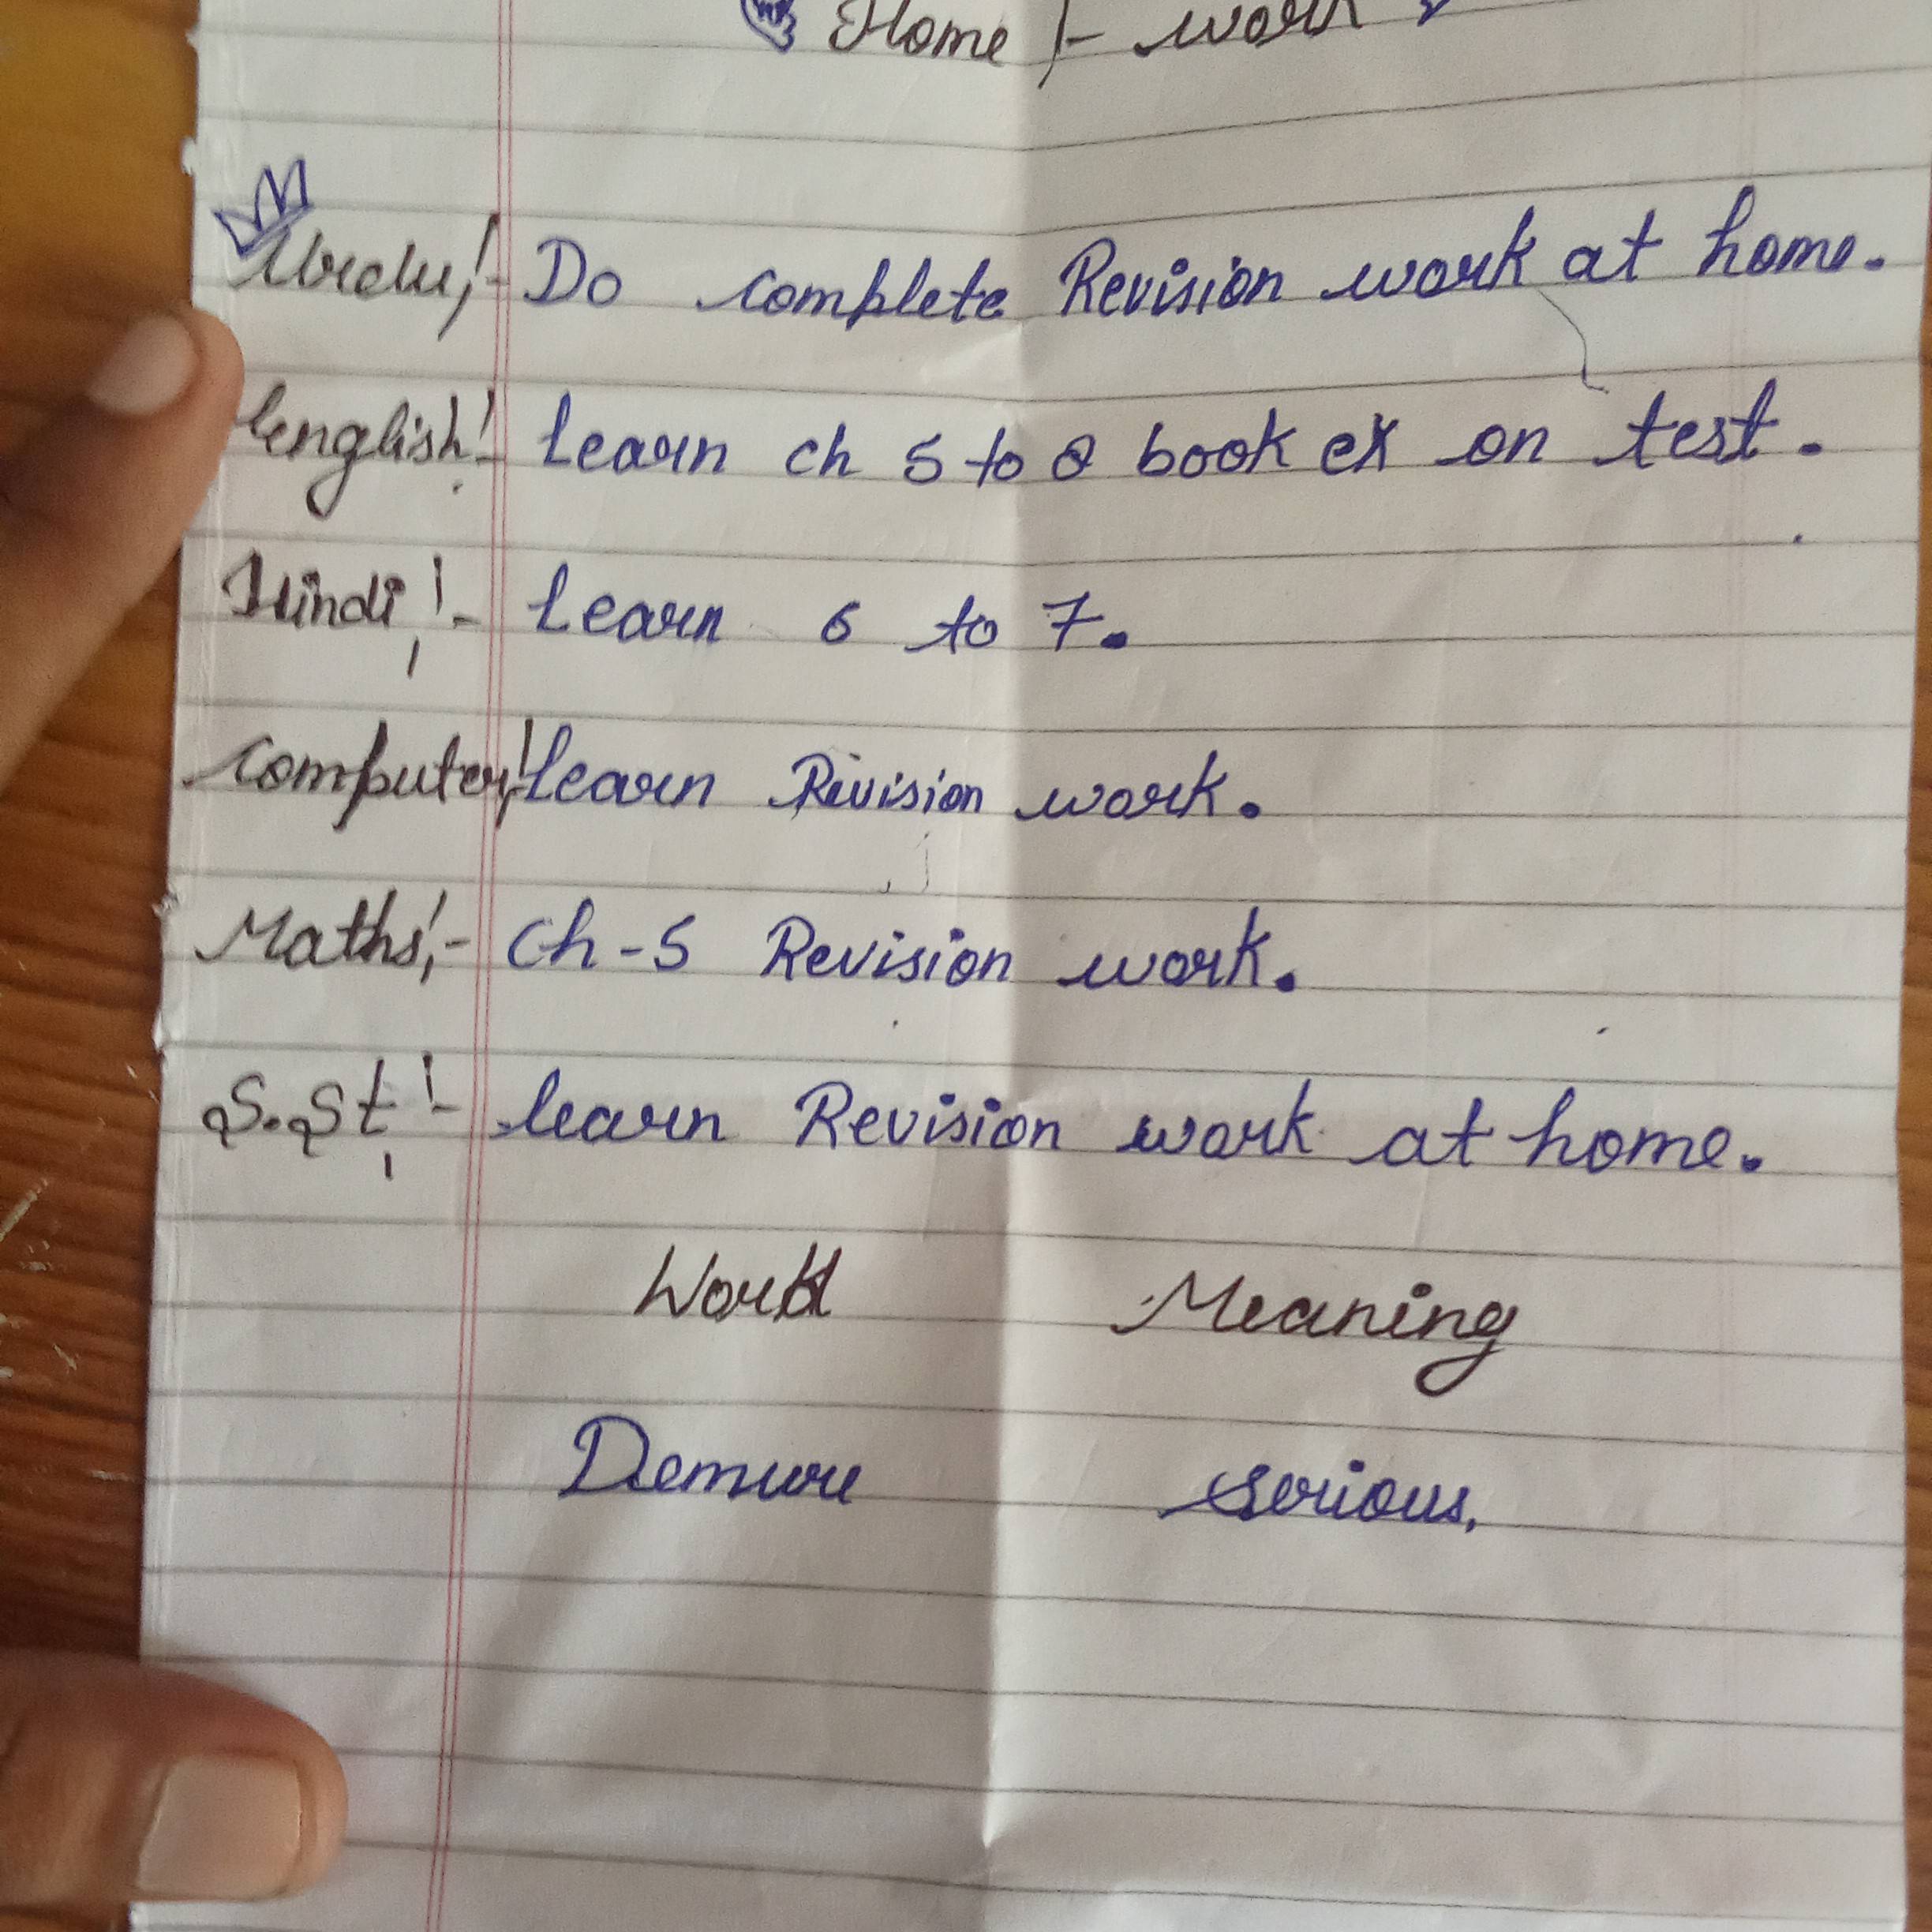 Home :- work
Urdu :- Do complete Revision work at home.
English :- Learn ch 5 to 8 book ex on test.
Hindi :- Learn 6 to 7.
Computer :- Learn Revision work.
Maths :- Ch - 5 Revision work.
S.St :- learn Revision work at home.
Word Meaning
Demure serious.